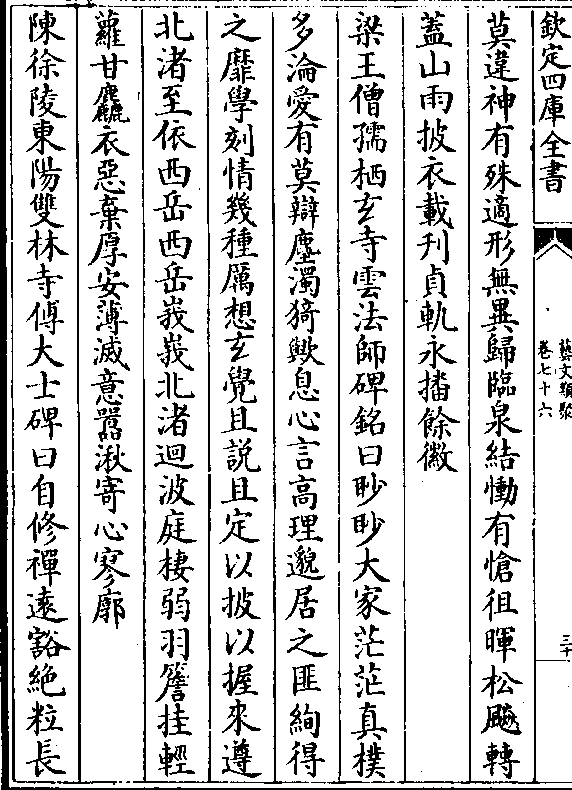 欽定四庫全書
藝文類聚
卷七十六
三十
莫違神有殊適形無異歸臨泉結慟有愴徂暉松颸轉
蓋山雨披衣載刋貞軌永播餘徽
梁王僧孺栖玄寺雲法師碑銘曰眇眇大家茫茫真樸
多淪愛有莫辯塵濁猗歟息心言高理邈居之匪絢得
之靡學刻情幾種厲想玄覺且説且定以披以握來遵
北渚至依西岳西岳峩峩北渚迴波庭棲弱羽簷挂輕
蘿甘麤衣惡棄厚安薄滅意囂湫寄心寥廓
陳徐陵東陽雙林寺傅大士碑曰自修禪遠豁絶粒長